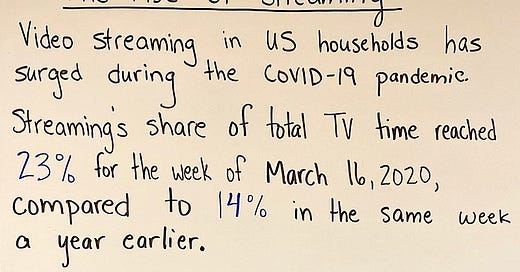 The Rise of Streaming
Video streaming in US households has
surged during the COVID-19 pandemic.
Streaming's share of total TV time reached
23% for the week of March 16, 2020,
compared to 14% in the same week
a year earlier.